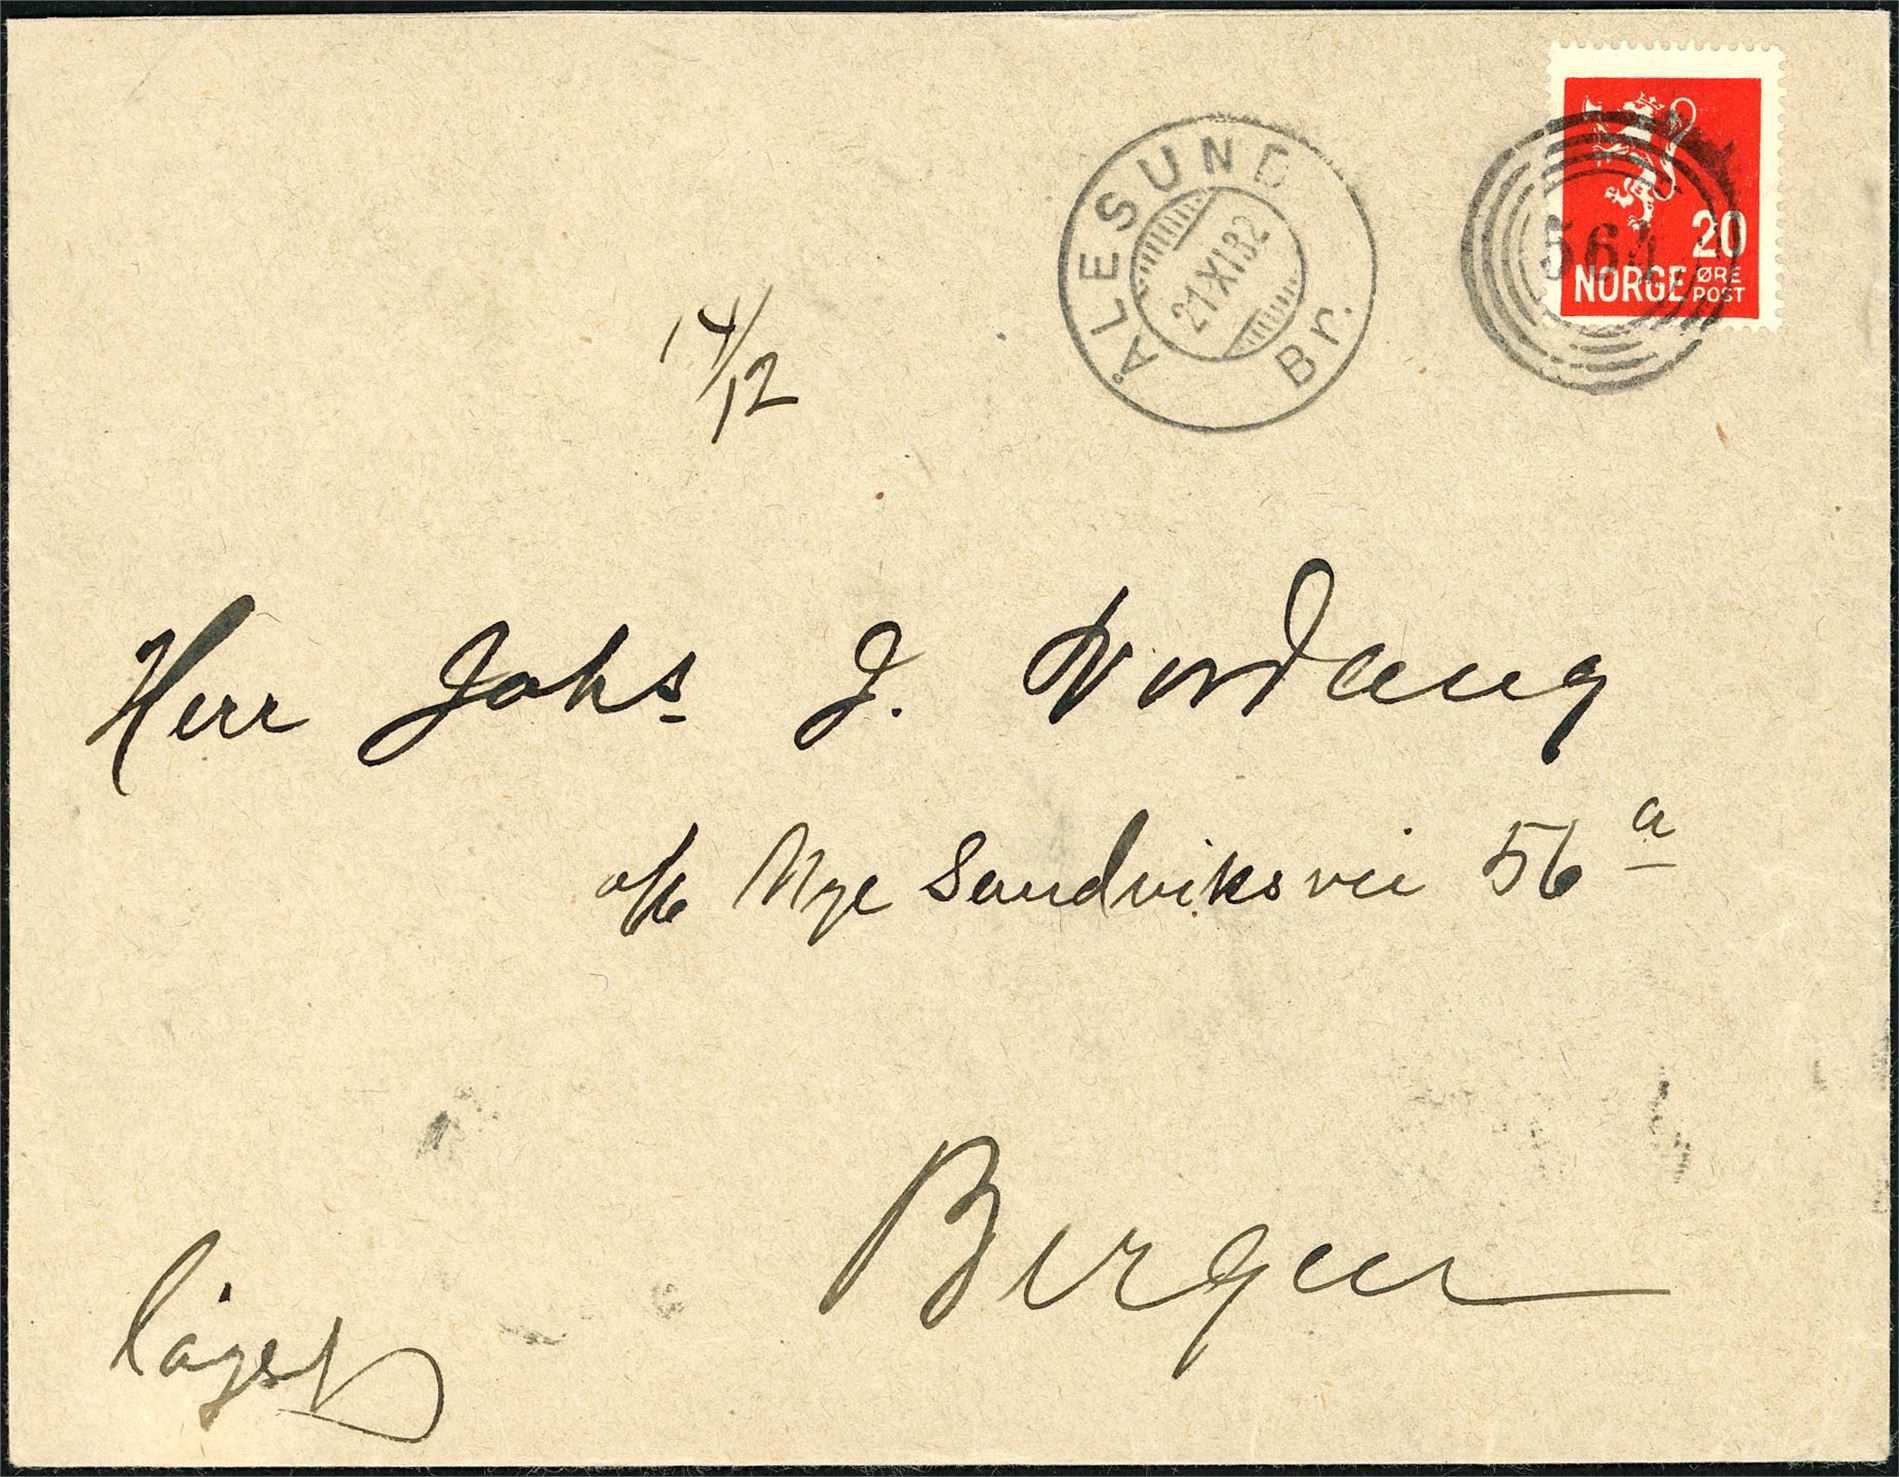 ÅLESUND Br.
21 XI 32
564
20
NORGE ØRE POST
14/12
Herr Johs. J. Nordang
Nye Sandviksvei 56 a
Bergen